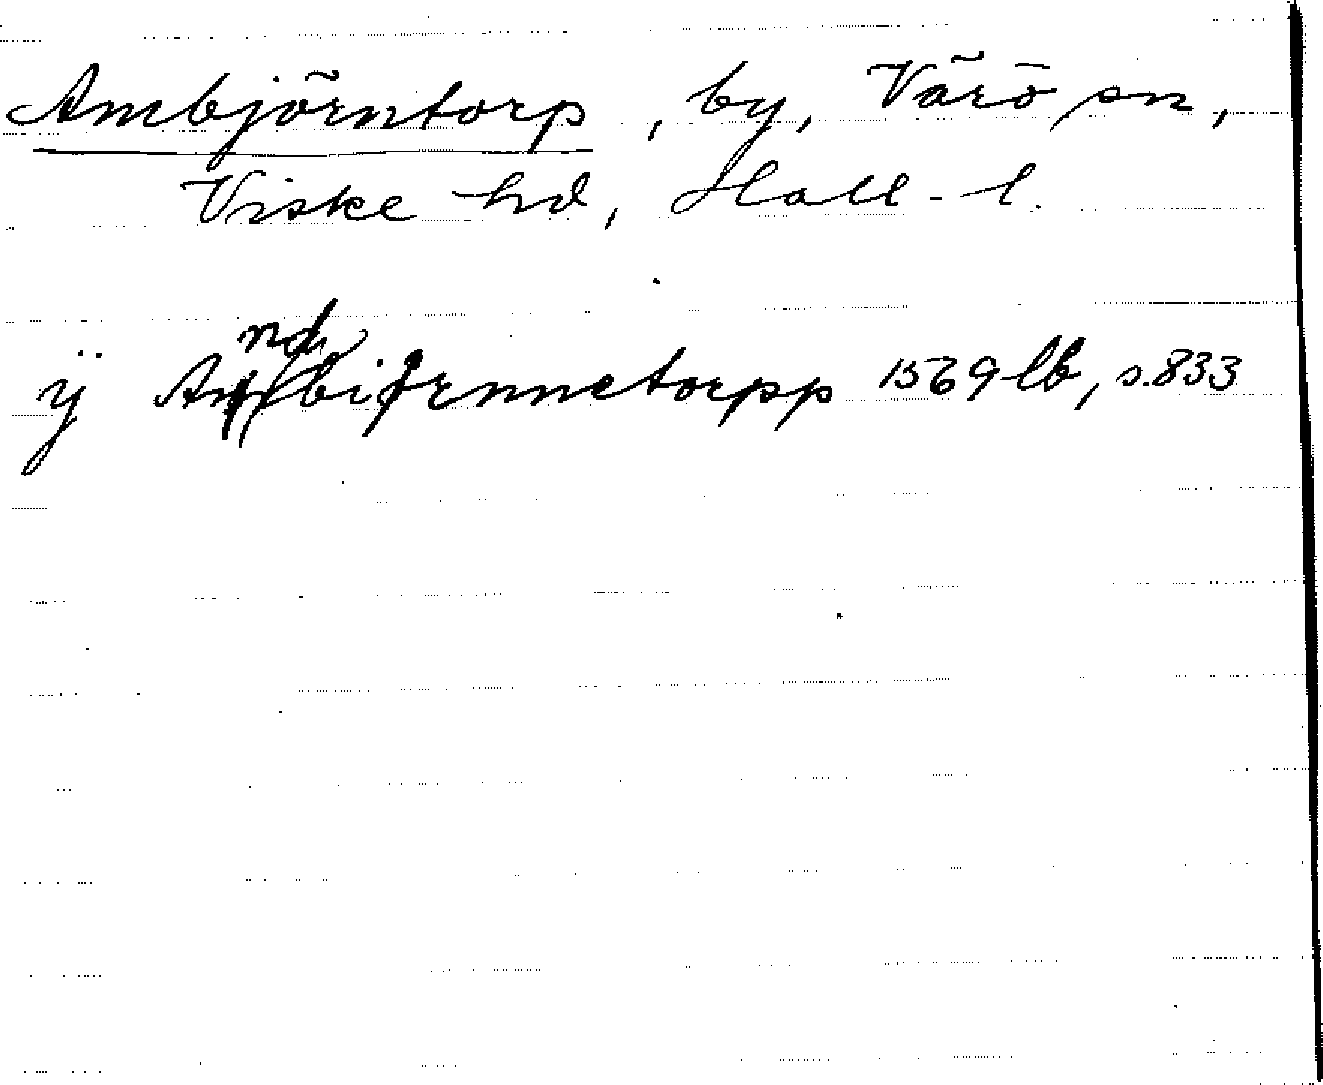 Ambjörntorp, by, Värö sn,
Viske hd, Hall-l.
ÿ Andbiørnnetorpp 1569 lb, s. 833